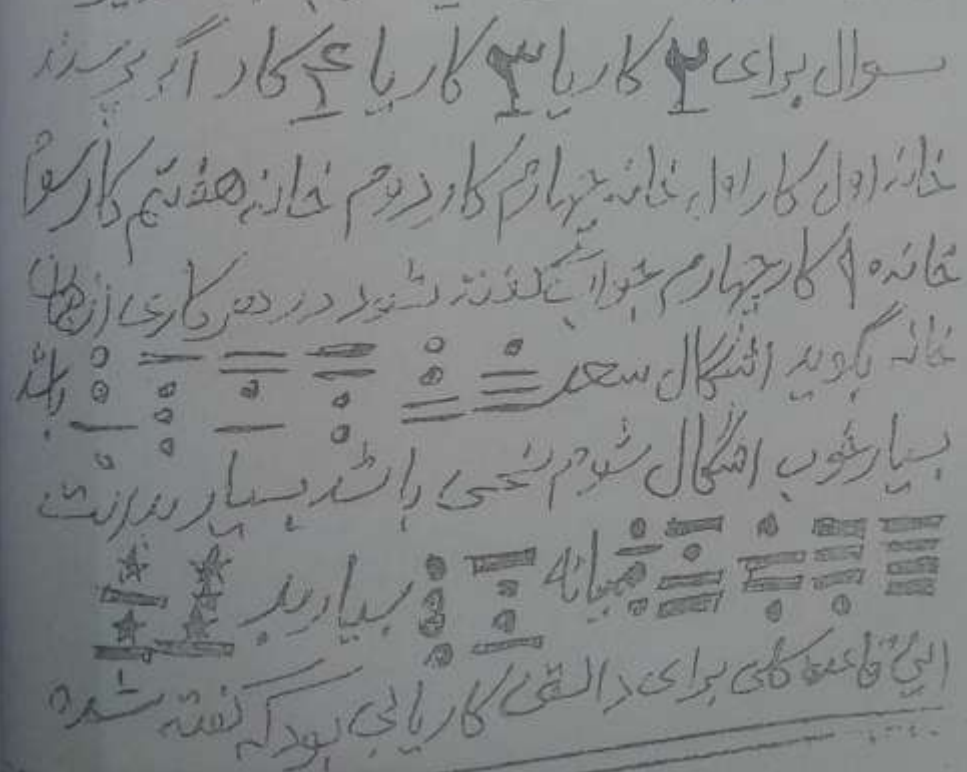 سوال برای ۲ کار یا ۳ کار یا ۴ کار اگر پرسند
خانه اول کار اول خانه چهارم کار دوم خانه هفتم کار سوم
خانه ۱۰ کار چهارم در هر کاری از همان
خانه گوید اشکال سعد باشد
بسیار خوب اشکال شوم نحس باشد بسیار بد است
میانه بسیار بد
این قاعده کلی برای دانستن کار یابی بود که گفته شده